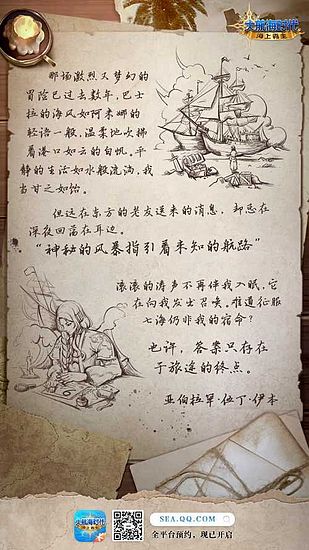 大航海时代
海上霸主
那场激烈又梦幻的
冒险已过去数年，巴士
拉的海风如阿米娜的
轻语一般，温柔地吹拂
着港口如云的白帆。平
静的生活如水般流淌，我
当甘之如饴。
但远在东方的老友送来的消息，却总在
深夜回荡在耳边。
“神秘的风暴指引着未知的航路”
滚滚的涛声不再伴我入眠，它
在向我发出召唤。难道征服
七海仍非我的宿命？
也许，答案只存在
于旅途的终点。
亚伯拉罕·伍丁·伊本
大航海时代
海上霸主
SEA.QQ.COM
全平台预约，现已开启